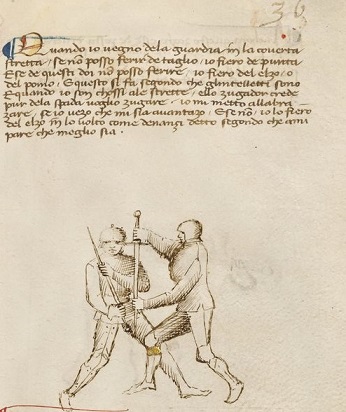 36
Quando io vegno dela guardia in la coverta
stretta / se non posso ferir de taglio / io fiero de punta
E se de questi doi no posso ferire / io fiero del elzo / o
del pomo / E questo si fa segondo che gl'intelletti sono
E quando io son chossi ale strette / ello zugador crede
pur dela spada voglio zugare / io mi metto all abra
zare / se io vezo che mi sia avantazo / E se non / io lo fiero
del elzo in lo volto come denanzi detto segondo che a mi
pare che meglio sia